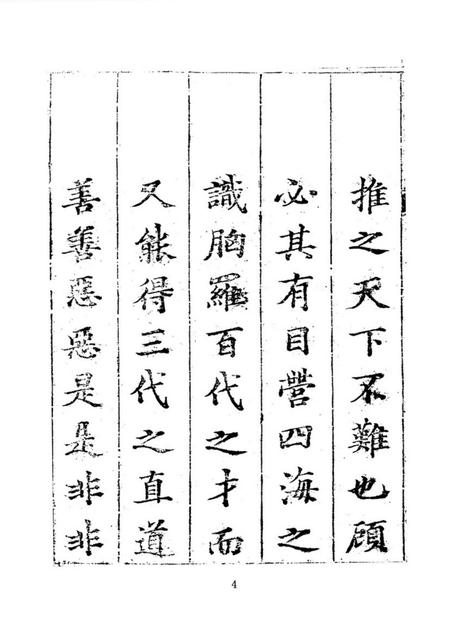 推之天下不難也顧
必其有目營四海之
識胸羅百代之才而
又能得三代之直道
善善惡惡是是非非
4